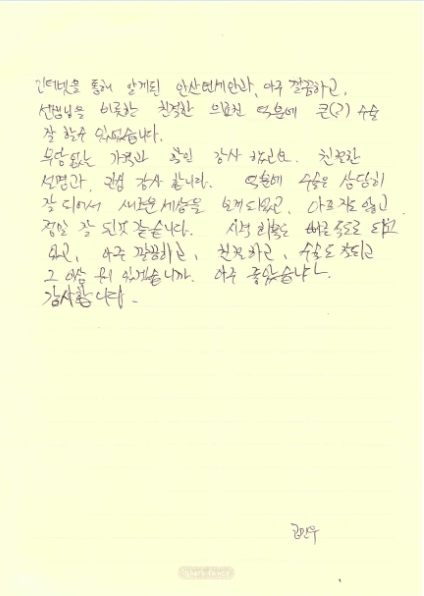 인터넷을 통해 알게된 안산연세안과, 아주 깔끔하고,
선생님을 비롯한 친절한 의료진 덕분에 큰(?) 수술
잘 할수 있었습니다.
부담없는 가격과 할인 감사 하고요. 친절한
설명과, 관심 감사 합니다. 덕분에 수술은 상당히
잘 되어서 새로운 세상을 보게 되었고, 아프지도 않고
정말 잘 된것 같습니다. 시력 회복도 빠른 속도로 되고
있고, 아주 깔끔하고, 친절하고, 수술도 잘되고
그 이상 뭐 있겠습니까. 아주 좋았습니다.
감사합니다.